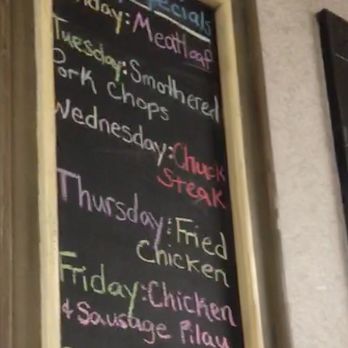 Specials
Monday: Meatloaf
Tuesday: Smothered
Pork Chops
Wednesday: Chuck
Steak
Thursday: Fried
Chicken
Friday: Chicken
& Sausage Pilau